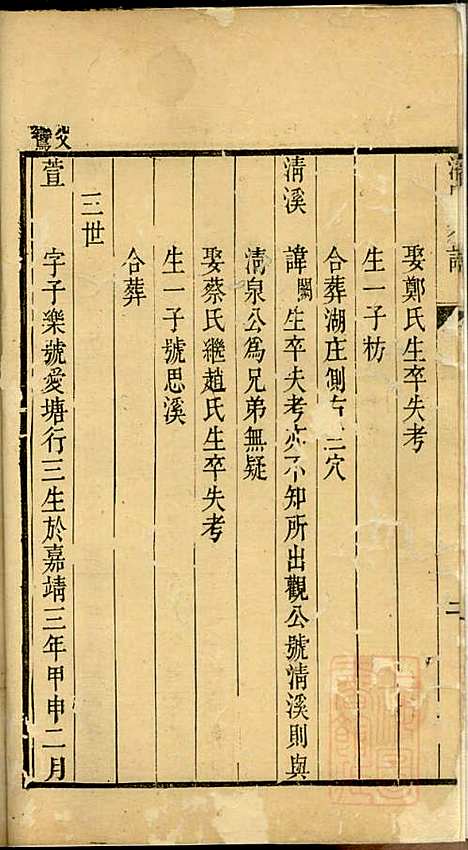 娶鄭氏生卒失考
生一子枋
合葬湖庄側 三穴
清溪 諱闕生卒失考亦不知所出觀公號清溪則與
清泉公為兄弟無疑
娶蔡氏繼趙氏生卒失考
生一子號思溪
合葬
三世
父
萱 字子樂號愛塘行三生於嘉靖三年甲申二月
二